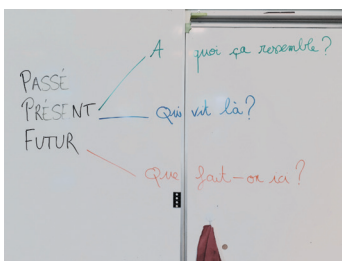 PASSÉ
PRÉSENT
FUTUR
A quoi ça ressemble?
Qui vit là?
Que fait-on ici?